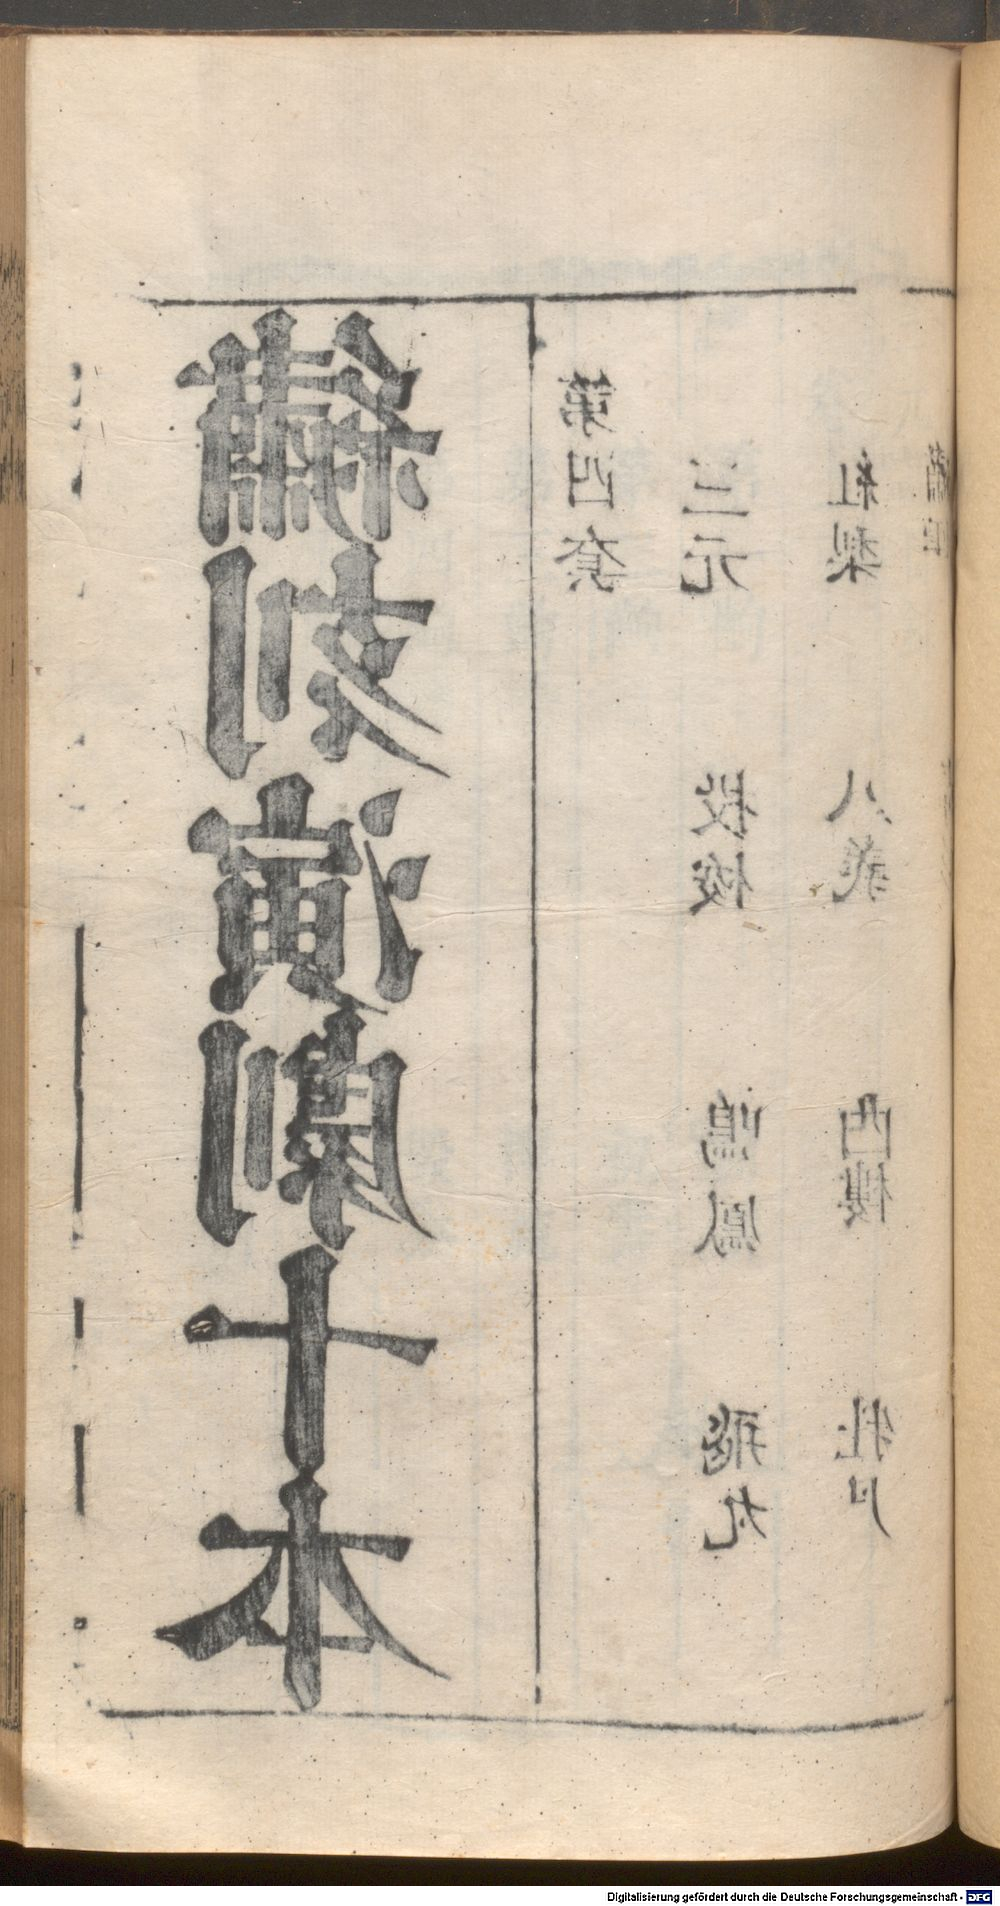 繡刻演劇十本
第四套
三元 投梭 鳴鳳 飛丸
紅梨 八義 西樓 牡丹
繡
Digitalisierung gefördert durch die Deutsche Forschungsgemeinschaft - DFG